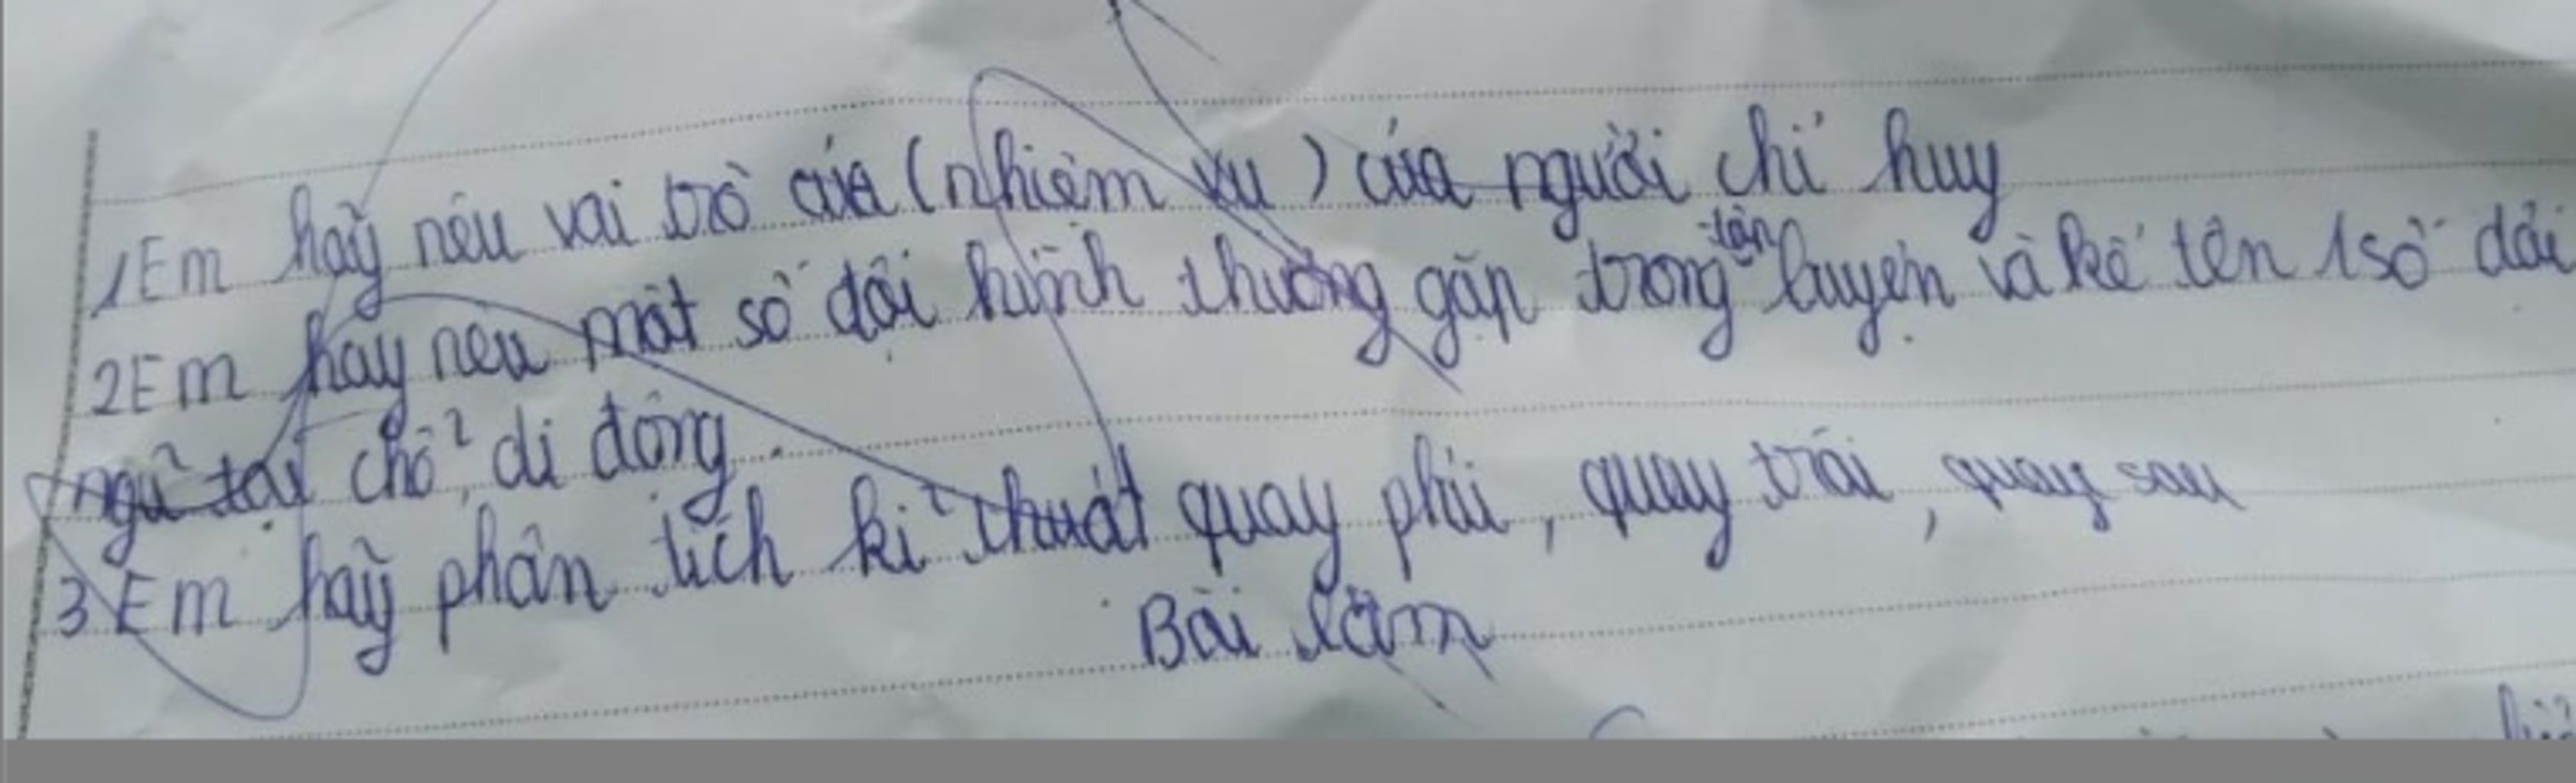 1 Em hãy nêu vai trò của (nhiệm vụ) của người chỉ huy
2 Em hãy nêu một số đội hình thường gặp trong tập luyện và kể tên 1 số đội
ngũ tại chỗ, di động.
3 Em hãy phân tích kĩ thuật quay phải, quay trái, quay sau
Bài làm